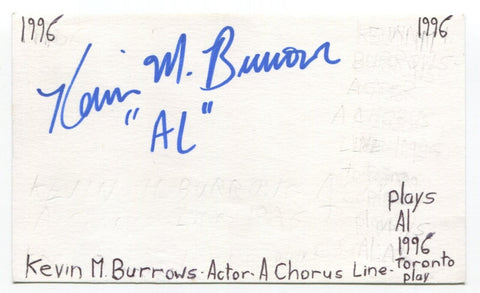 1996 1996
Kevin M. Burrows
"AL"
plays
Al
1996
Kevin M. Burrows - Actor - A Chorus Line - Toronto
play